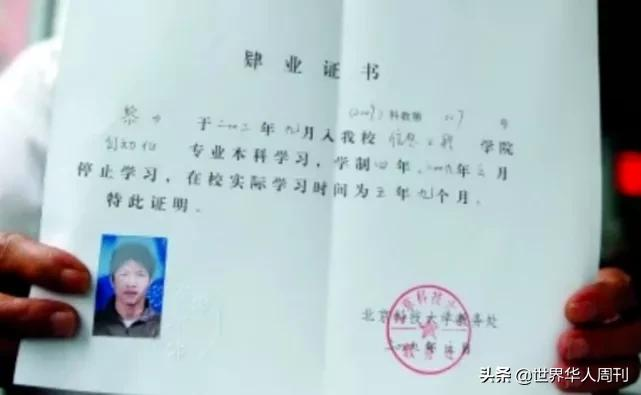 肄业证书
(2009)科教第 117 号
黎 于二〇〇三年九月入我校 信息工程 学院
自动化 专业本科学习，学制四年，二〇〇九年 月
停止学习，在校实际学习时间为五年九个月。
特此证明。
北京科技大学教务处
二〇〇九年 月
头条 @世界华人周刊